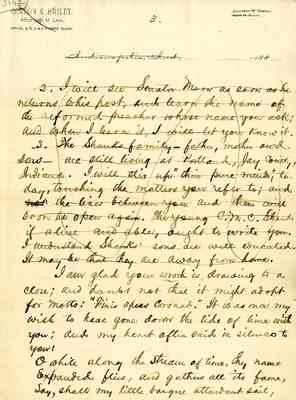 3.
Attorney at Law,
Indianapolis, Ind. 188
2. I will see Senator Moon as soon as he
returns to his post, and learn the name of
the reformed preacher whose name you ask;
and when I learn it, I will let you know it.
3. The Shanks family - father, mother and
sons - are still living at Portland, Jay County,
Indiana. I will "stir up" their "pure minds," to-
day, touching the matters you refer to; and
the lines between you and them will
soon be open again. The young C.M.C. Shanks
if alive and able, ought to write you.
I understand Shanks' sons are well educated.
It may be that they are away from home.
I am glad your work is drawing to a
close; and doubt not that it might adopt
for motto: "Finis opus coronat." It was once my
wish to have gone down the tide of time with
you; and my heart often said in silence to
you:
O while along the stream of time, thy name
Expanded flies, and gathers all its fame,
Say, shall my little barque attendant sail,